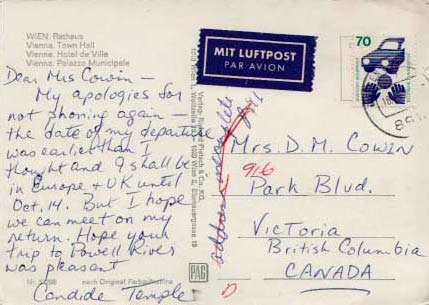 WIEN, Rathaus
Vienna. Town Hall
Vienna. Hotel de Ville
Vienna. Palazzo Municipale
Dear Mrs Cowin —
My apologies for
not phoning again —
the date of my departure
was earlier than I
thought and I shall be
in Europe + UK until
Oct. 14. But I hope
we can meet on my
return. Hope your
trip to Powell River
was pleasant
Candide Temple
Nr.
nach Original Farbaufnahme
PAG
MIT LUFTPOST
PAR AVION
70
address incomplete
Mrs. D. M. COWIN
916
Park Blvd.
Victoria
British Columbia
CANADA